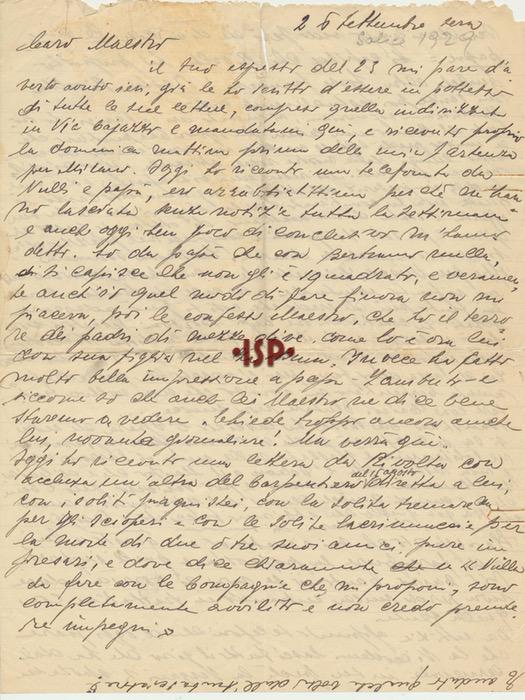 25 Settembre sera
1929
Caro Maestro
il tuo espresso del 23 mi pare d'a
verlo avuto ieri, già le ho scritto d'essere in possesso
di tutte le sue lettere, compreso quella indirizzata
in Via Cajazzo e mandatami qui, e ricevuto proprio
la domenica mattina prima della mia partenza
per Milano. Oggi ho ricevuto una telefonata da
Nulli e papà, ero arrabbiatissima perché mi han
no lasciata senza notizie tutta la settimana
e anche oggi ben poco di conclusivo m'hanno
detto. So da papà che con
si capisce che non gli è squadrato, e veramen
te anch'io quel modo di fare finora non mi
piaceva, poi le confesso Maestro, che ho il terro
re dei padri di mezze dive, come lo è ora lui
con sua figlia nel Invece ha fatto
molto bella impressione a papà Zambuto e
siccome so che anche lei Maestro ne dice bene
staremo a vedere. Chiede troppo ancora anche
lui, novanta giornaliere! Ma verrà qui.
Oggi ho ricevuto una lettera da Rivolta con
acclusa un'altra del Carpentiero del 1 agosto diretta a lui,
con i soliti con la solita
per gli scioperi e con le solite per
la morte di due o tre suoi amici, pure im
presari, e dove dice chiaramente che
da fare con le Compagnie che mi proponi, sono
completamente avvilito e non credo prende
re impegni.
ISP